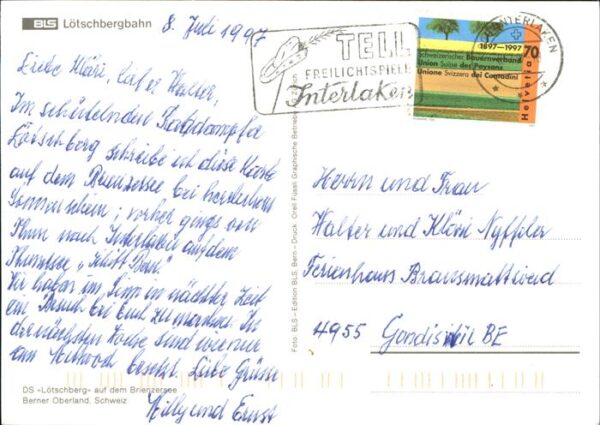 BLS Lötschbergbahn
8. Juli 1997
Liebe Kläri, lieber Walter,
Im schüttelnden Raddampfer
Lötschberg schreibe ich diese Karte
auf dem Brienzersee bei herrlichem
Sonnenschein; vorher gings von
Thun nach Interlaken auf dem
Thunersee "Schiff Bern".
Wir haben im Sinn in nächster Zeit
ein Besuch bei Euch zu machen. In
der nächsten Woche sind wir nur
am Mittwoch besetzt. Liebe Grüsse
Willy und Ernst
DS «Lötschberg» auf dem Brienzersee
Berner Oberland, Schweiz
Foto: BLS - Edition BLS, Bern - Druck: Orell Füssli Graphische Betriebe
TELL
FREILICHTSPIELE
Interlaken
INTERLAKEN
1897-1997
70
Schweizerischer Bauernverband
Union Suisse des Paysans
Unione Svizzera dei Contadini
Helvetia
Herrn und Frau
Walter und Kläri Nyffeler
Ferienhaus Bransmattweid
4955 Gondiswil BE